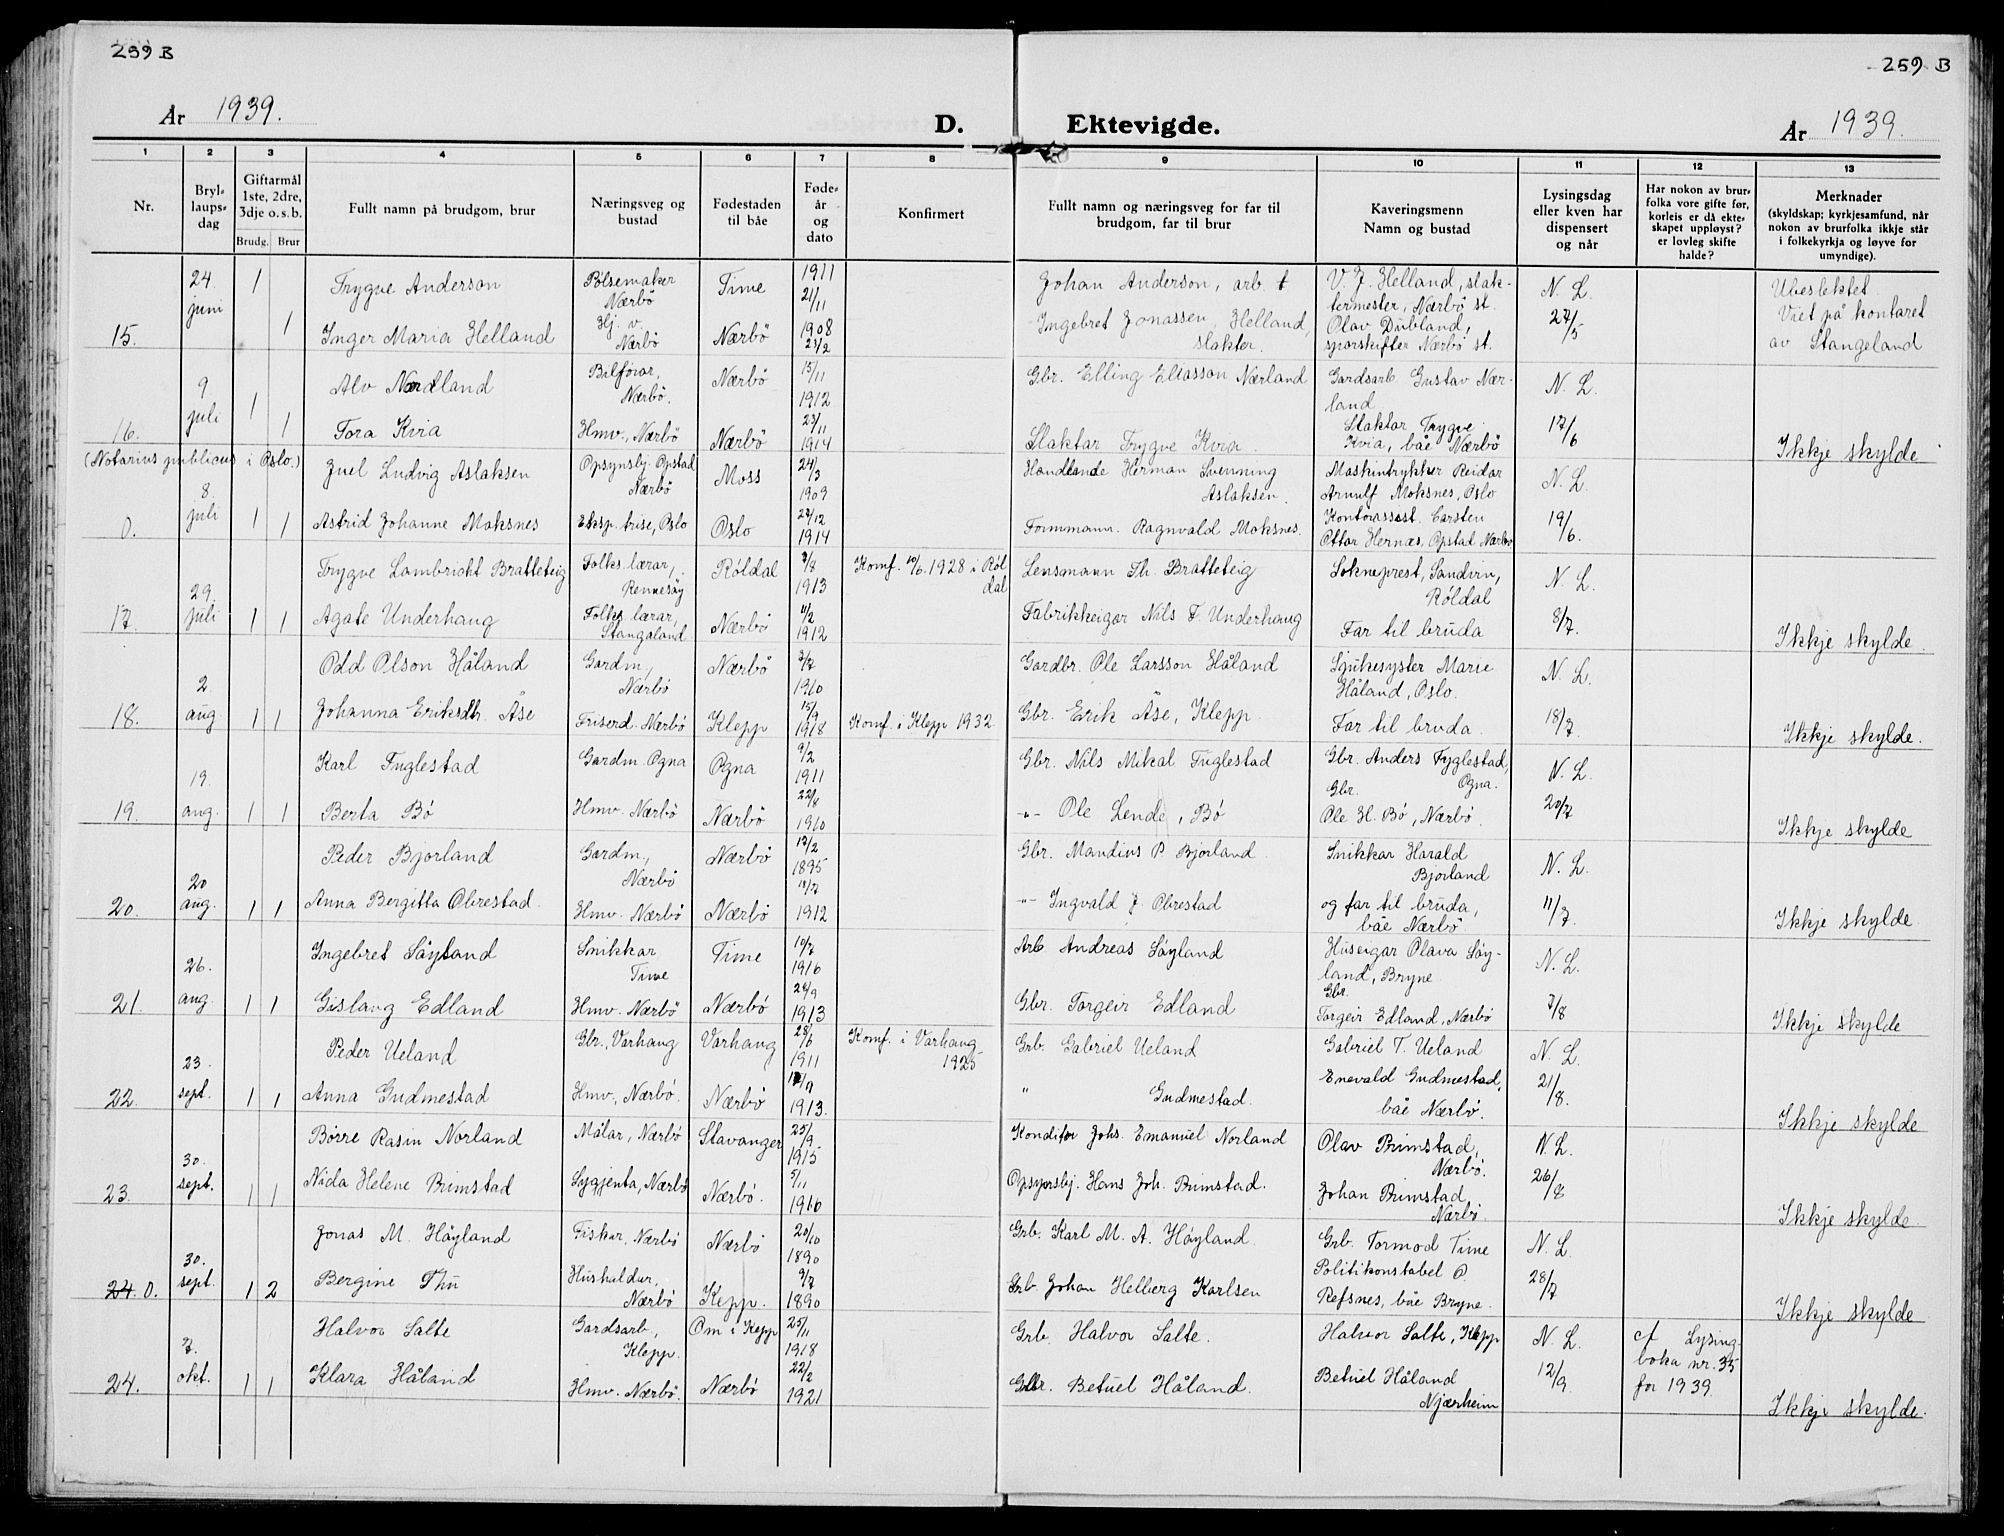 259 B
259 B
År 1939.
D. Ektevigde.
År 1939.
1 2 3 4 5 6 7 8 9 10 11 12 13
Nr.
Bryl-
laups-
dag
Giftarmål
1ste, 2dre,
3dje o. s. b.
Brudg. Brur
Fullt namn på brudgom, brur
Næringsveg og
bustad
Fødestaden
til båe
Føde-
år
og
dato
Konfirmert
Fullt namn og næringsveg for far til
brudgom, far til brur
Kaveringsmenn
Namn og bustad
Lysingsdag
eller kven har
dispensert
og når
Har nokon av brur-
folka vore gifte før,
korleis er då ekte-
skapet uppløyst?
er lovleg skifte
halde?
Merknader
(skyldskap; kyrkjesamfund, når
nokon av brurfolka ikkje står
i folkekyrkja og løyve for
umyndige).
15.
24.
juni
1
1
Trygve Anderson
Inger Maria Helland
Pølsemaker
Nærbö
Hj. v.
Nærbö
Time
Nærbö
1911
21/11
1908
23/2
Johan Anderson, arb. t
Ingebret Jonassen Helland,
slakter.
V. J. Helland, slak-
termester, Nærbö st.
Olav Dubland,
sporskifter Nærbö st.
N. L.
27/5
Ubeslektet.
Viet på kontoret
av Stangeland
16.
9
juli
1
1
Alv Nærland
Tora Kvia
Bilförar,
Nærbö.
Hmv., Nærbö
Nærbö
Nærbö
15/11
1912
23/11
1914
Gbr. Elling Eliasson Nærland
Slaktar Trygve Kvia.
Gardsarb. Gustav Nær-
land
Slaktar Trygve
Kvia, båe Nærbö
N. L.
17/6
Ikkje skylde
(Notarius publicus i Oslo.)
0.
8.
juli
1 1
Juel Ludvig Aslaksen
Astrid Johanne Moksnes
Opsynsbj. Opstad
Nærbö
Eksp. trise, Oslo
Moss
Oslo
24/3
1909
27/12
1914
Handlande Herman Svenning
Aslaksen.
Formmann. Ragnvald Moksnes.
Maskintrykker Reidar
Arnulf Moksnes, Oslo
Kontorassist. Carsten
Ottar Hernæs, Opstad Nærbö
N. L.
19/6.
17.
29.
juli
1 1
Trygve Lambricht Bratteteig
Agate Underhaug
Folks. lærar,
Rennesöy
Folks. lærar,
Stangaland
Röldal
Nærbö
3/8
1913
11/2
1912
Komf. 10/6. 1928 i Röl
dal
Lensmann Th. Bratteteig
Fabrikkeigar Nils T. Underhaug
Sokneprest, Sandvin,
Röldal
Far til bruda
N. L.
8/7.
Ikkje skylde.
18.
2.
aug.
1 1
Odd Olson Håland
Johanna Eriksdtr. Åse
Gardm.,
Nærbö
Friserd. Nærbö
Nærbö
Klepp
3/7
1910
15/9
1918
Komf. i Klepp 1932
Gardbr. Ole Larsson Håland
Gbr. Erik Åse, Klepp.
Sjukesyster Marie
Håland, Oslo.
Far til bruda.
N. L.
18/7
Ikkje skylde.
19.
19.
aug.
1 1
Karl Fuglestad
Berta Bö
Gardm. Ogna
Hmv. Nærbö
Ogna
Nærbö
9/2
1911
22/8
1910
Gbr. Nils Mikal Fuglestad
-"- Ole Lende, Bö
Gbr. Anders Fyglestad,
Ogna.
Gbr.
Ole H. Bö, Nærbö.
N. L.
20/7
Ikkje skylde
20.
20
aug.
1 1
Peder Bjorland
Anna Bergitta Obrestad.
Gardm.,
Nærbö
Hmv. Nærbö
Nærbö
Nærbö
17/2
1895
18/7
1912
Gbr. Mandius P. Bjorland.
-"- Ingvald J. Obrestad
Snikkar Harald
Bjorland
og far til bruda,
båe Nærbö.
N. L.
11/7.
Ikkje skylde.
21.
26.
aug.
1 1
Ingebret Söyland
Gislaug Edland
Snikkar
Time
Hmv. Nærbö
Time
Nærbö
10/7
1916
24/9
1913
Arb. Andreas Söyland
Gbr. Torgeir Edland
Huseigar Olava Söy-
land, Bryne.
Gbr.
Torgeir Edland, Nærbö
N. L.
7/8
Ikkje skylde
22.
23.
sept.
1 1
Peder Ueland
Anna Gudmestad
Gbr., Varhaug
Hmv., Nærbö.
Varhaug
Nærbö
28/6
1911
1913.
Komf. i Varhaug
1925
Grb. Gabriel Ueland
" Gudmestad.
Gabriel T. Ueland
Enevald Gudmestad,
båe Nærbö.
N. L.
21/8.
Ikkje skylde
23.
30.
sept.
1 1
Börre Rasin Norland
Nida Helene Brimstad
Målar, Nærbö
Sygjenta, Nærbö
Stavanger
Nærbö.
25/9
1915
5/11
1916
Konditor Johs. Emanuel Norland
Opsynsbj. Hans Joh. Brimstad.
Olav Brimstad,
Nærbö.
Johan Brimstad,
Nærbö.
N. L.
26/8
Ikkje skylde.
24. 0.
30.
sept.
1 2
Jonas M. Höyland
Bergine Thu
Fiskar, Nærbö
Hushaldar,
Nærbö
Nærbö
Kepp.
20/10
1890
9/7
1890
Grb. Karl M. A. Höyland.
Grb. Johan Helberg Karlsen
Grb. Tormod Time
Politikonstabel O.
Refsnes, båe Bryne.
N. L.
28/7
Ikkje skylde
24.
7.
okt.
1 1
Halvor Salte
Klara Håland
Gardsarb.,
Klepp.
Hmv. Nærbö.
Om i Kepp
Nærbö
25/11
1918
22/2
1921
Grb. Halvor Salte.
Gbr. Betuel Håland.
Halvor Salte, Klepp
Betuel Håland
Njærheim
N. L.
12/9.
cf Lysing-
boka nr. 35
for 1939.
Ikkje skylde.